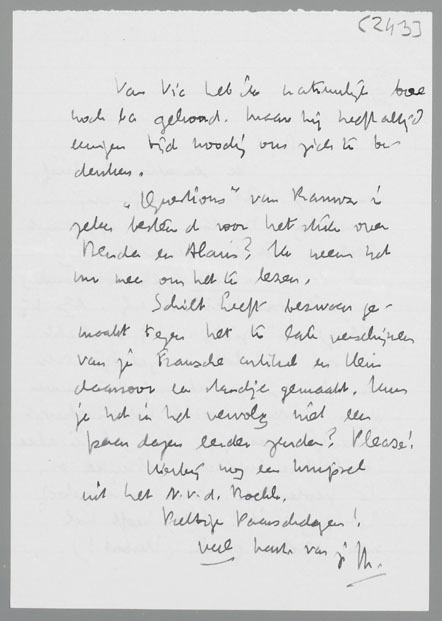 (243)
Van Vic heb ik natuurlijk boe
noch ba gehoord. Maar hij heeft altijd
eenigen tijd noodig om zich te be-
denken.
"Questions" van Ramuz is
zeker besteld voor het stuk over
Benda en Alain? Ik neem het
nu mee om het te lezen.
Schilt heeft bezwaar ge-
maakt tegen het te late verschijnen
van je Fransche artikel en
daarvoor een standje gemaakt. Kun
je het in het vervolg niet een
paar dagen eerder zenden? Please!
Hierbij nog een knipsel
uit het N.v.d. 
Prettige Paaschdagen!
veel hartt. van je M.